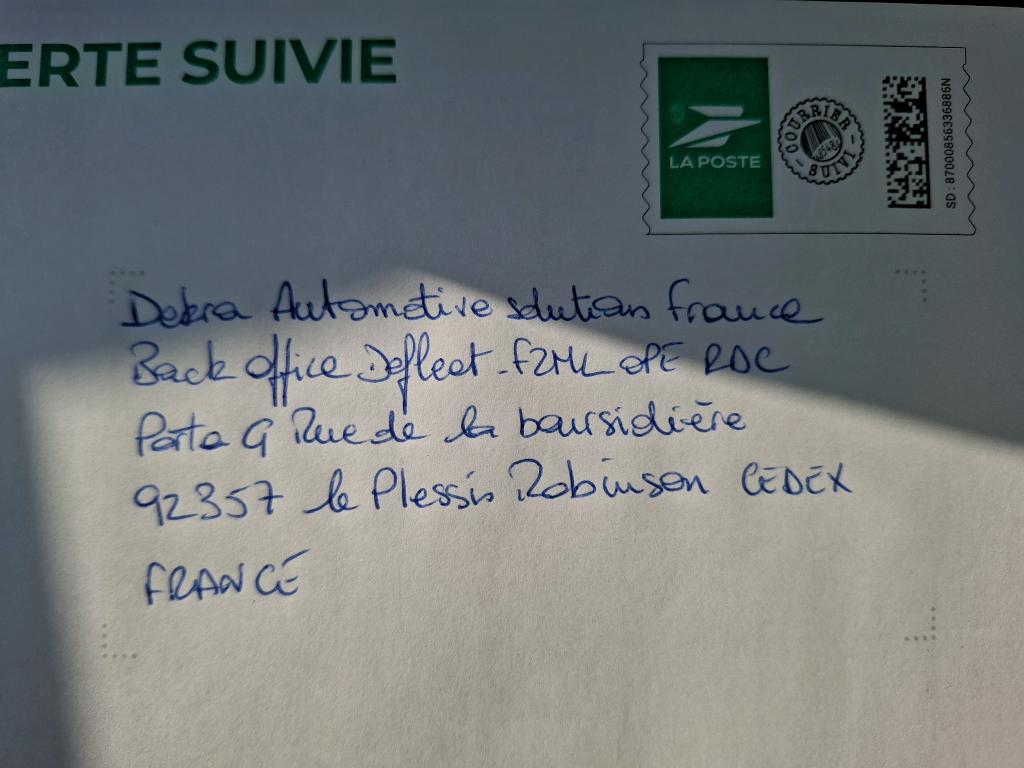 ERTE SUIVIE
LA POSTE
COURRIER SUIVI
SD : 87000856336886N
Dekra Automotive solutions france
Back office Defleet - F2ML OPE RDC
Porte G Rue de la boursidière
92357 le Plessis Robinson CEDEX
FRANCE